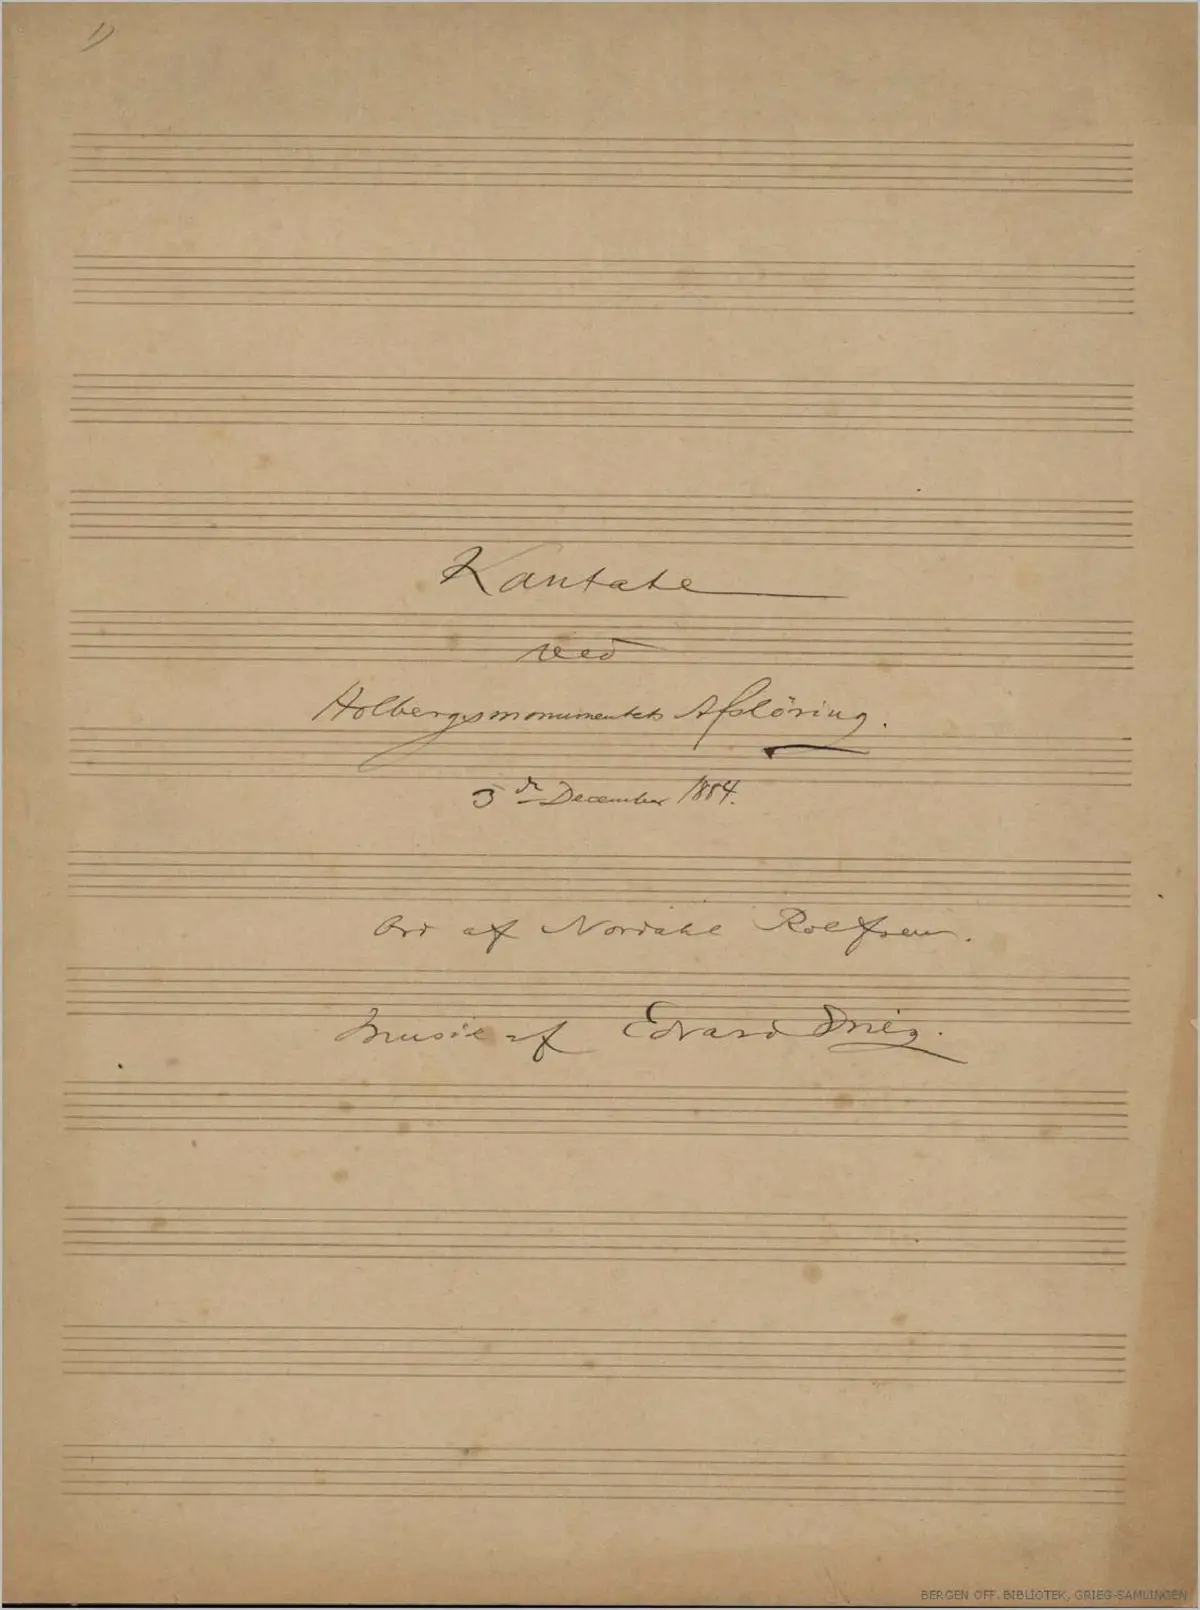 1)
Kantate
ved
Holbergsmonumentets Afslöring.
3die December 1884.
Ord af Nordahl Rolfsen.
Musik af Edvard Grieg.
BERGEN OFF. BIBLIOTEK, GRIEG-SAMLINGEN